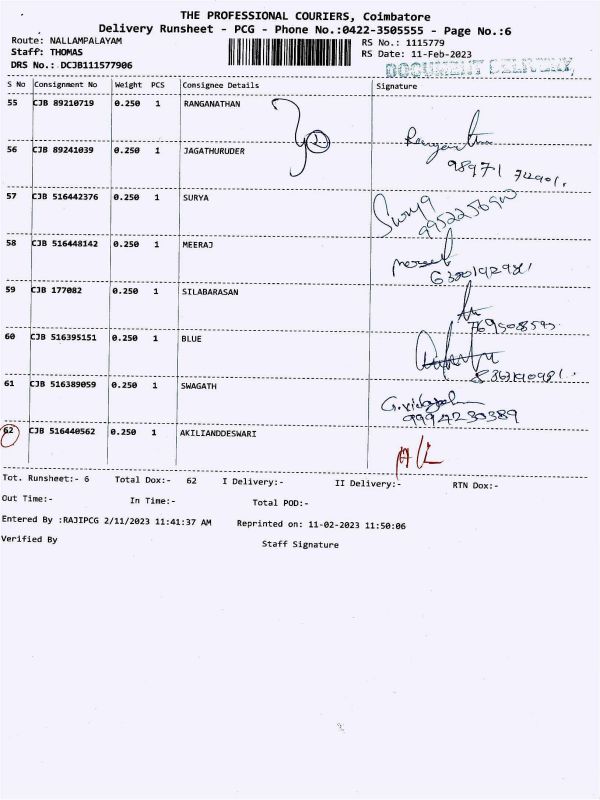 THE PROFESSIONAL COURIERS, Coimbatore
Delivery Runsheet - PCG - Phone No.:0422-3505555 - Page No.:6
Route: NALLAMPALAYAM RS No.: 1115779
Staff: THOMAS RS Date: 11-Feb-2023
DRS No.: DCJB111577906 DOCUMENT DELIVERY
S No Consignment No Weight PCS Consignee Details Signature
55 CJB 89210719 0.250 1 RANGANATHAN
56 CJB 89241039 0.250 1 JAGATHURUDER
57 CJB 516442376 0.250 1 SURYA Surya
58 CJB 516448142 0.250 1 MEERAJ
59 CJB 177082 0.250 1 SILABARASAN
60 CJB 516395151 0.250 1 BLUE
61 CJB 516389059 0.250 1 SWAGATH
9994230389
62 CJB 516440562 0.250 1 AKILIANDDESWARI
Tot. Runsheet:- 6 Total Dox:- 62 I Delivery:- II Delivery:- RTN Dox:-
Out Time:- In Time:- Total POD:-
Entered By :RAJIPCG 2/11/2023 11:41:37 AM Reprinted on: 11-02-2023 11:50:06
Verified By Staff Signature